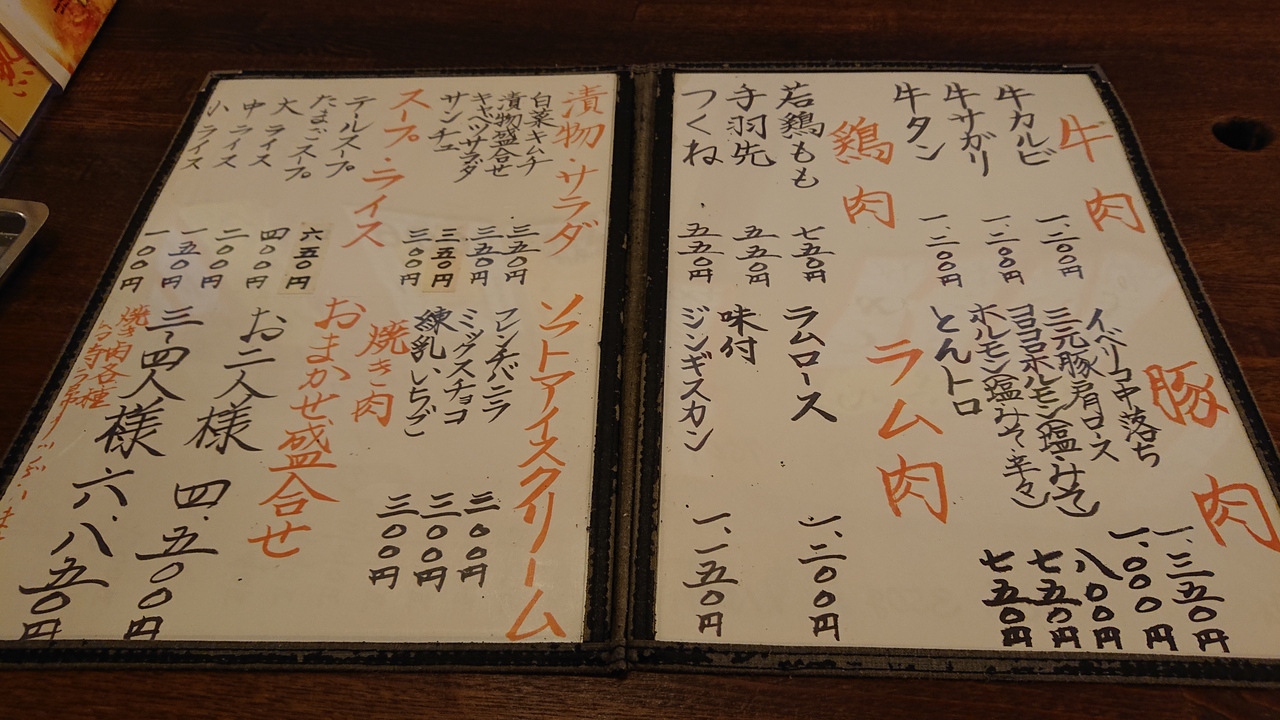 牛肉
牛カルビ 一、二〇〇円
牛サガリ 一、二〇〇円
牛タン 一、二〇〇円
鶏肉
若鶏もも 七五〇円
手羽先 五五〇円
つくね 五五〇円
豚肉
イベリコ中落ち 一、三五〇円
三元豚肩ロース 一、〇〇〇円
コロコロホルモン(塩・みそ) 八〇〇円
ホルモン(塩・みそ・辛々) 七五〇円
とんトロ 七五〇円
ラム肉
ラムロース 一、二〇〇円
味付
ジンギスカン 一、一五〇円
漬物・サラダ
白菜キムチ 三五〇円
漬物盛合せ 五五〇円
キャベツサラダ 三五〇円
サンチュ 三〇〇円
スープ・ライス
テールスープ 六五〇円
たまごスープ 四〇〇円
大ライス 二〇〇円
中ライス 一五〇円
小ライス 一〇〇円
ソフトアイスクリーム
フレンチバニラ 三〇〇円
ミックスチョコ 三〇〇円
練乳いちご 三〇〇円
焼き肉
おまかせ盛合せ
お二人様 四、五〇〇円
三〜四人様 六、八五〇円
焼き肉各種